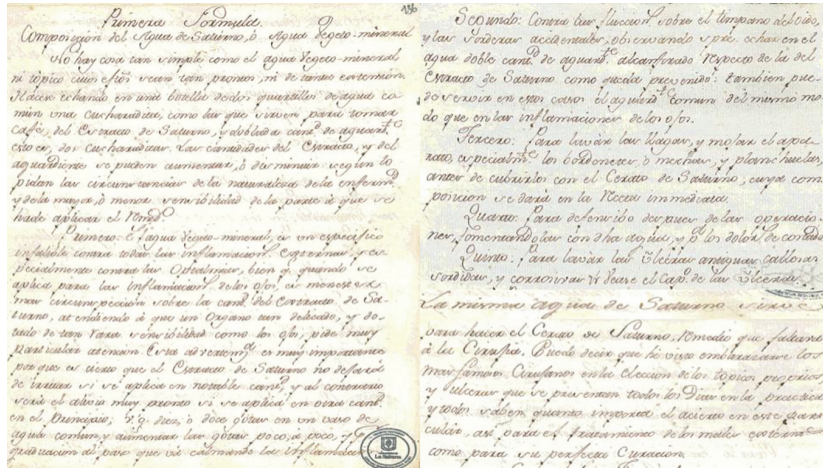 156
Primera Formula.
Composicion del Agua de Saturno, ò Agua Vegeto-mineral
No hay cosa tan simple como el agua Vegeto-mineral
ni topico cuios efectos sean tan prontos, ni de tanta extension.
Hacese echando en una botella de dos quartillos de agua co-
mun una cucharadita, como las que sirven para tomar
Café, del Extracto de Saturno, y doblada cantd. de aguardte.
esto es, dos cucharaditas. Las cantidades del Extracto, y del
aguardiente se pueden aumentar, ò disminuir segun lo
pidan las circunstancias de la naturaleza de la enfermd.
y de la mayor, ò menor sensibilidad de la parte à que se
hade aplicar el Remdo.
Primero: El agua Vegeto-mineral, es un especifico
infalible contra todas las inflamacions. externas, y es-
pecialmente contra las Optalmias, bien q. quando se
aplica para las inflamacions. de los ojos, es menester
mas circunspeccion sobre la cantd. del Extracto de Sa-
turno, atendiendo à que un Organo tan delicado, y do-
tado de tan rara sensibilidad como los ojos, pide muy
particular atencion. Esta advertena. es muy importante
porque es cierto que el Extracto de Saturno no dejará
de irritar si se aplica en notable cantd. y al contrario
será el alivio muy pronto si se aplica en corta cantd.
en el Principio; v.g. diez, ò doce gotas en un vaso de
agua comun, y aumentar las gotas poco, à poco, y
graduacion al paso que và calmando la Inflamacion
Segundo: Contra las fluccions. sobre el timpano del oido,
y las sorderas accidentales, observando spre. echar en el
agua doble cantd. de aguardte. alcanforado respecto de la del
Extracto de Saturno como queda prevenido: tambien pue-
de servir en estos casos el aguardte. comun del mismo mo-
do que en las inflamaciones de los ojos.
Tercero: Para lavar las llagas, y mojar el apa-
rato, especialmte. los lordonetes, ò mechas, y planchuelas,
antes de cubrirlos con el Cerato de Saturno, cuya com-
posicion se dará en la Receta immediata.
Quarto: Para defensivo despues de las operacio-
nes, fomentandolas con dha agua, y pa. los dolors. de costado
Quinto: Para lavar las Ulceras antiguas, callosas
sordidas, y corrosivas Vr. vease el Capo. de las Ulceras.
La misma agua de Saturno sirve
para hacer el Cerato de Saturno, remedio que faltava
à la Cirujia. Puedo decir que he visto embarazarse los
mas famosos Cirujanos en la eleccion de los topicos precisos
y ulceras que se presentan todos los Dias en la practica
y todos saben quanto importa el acierto en este parti-
cular, asi para el tratamiento de los males externos
como para su perfecta Curacion.